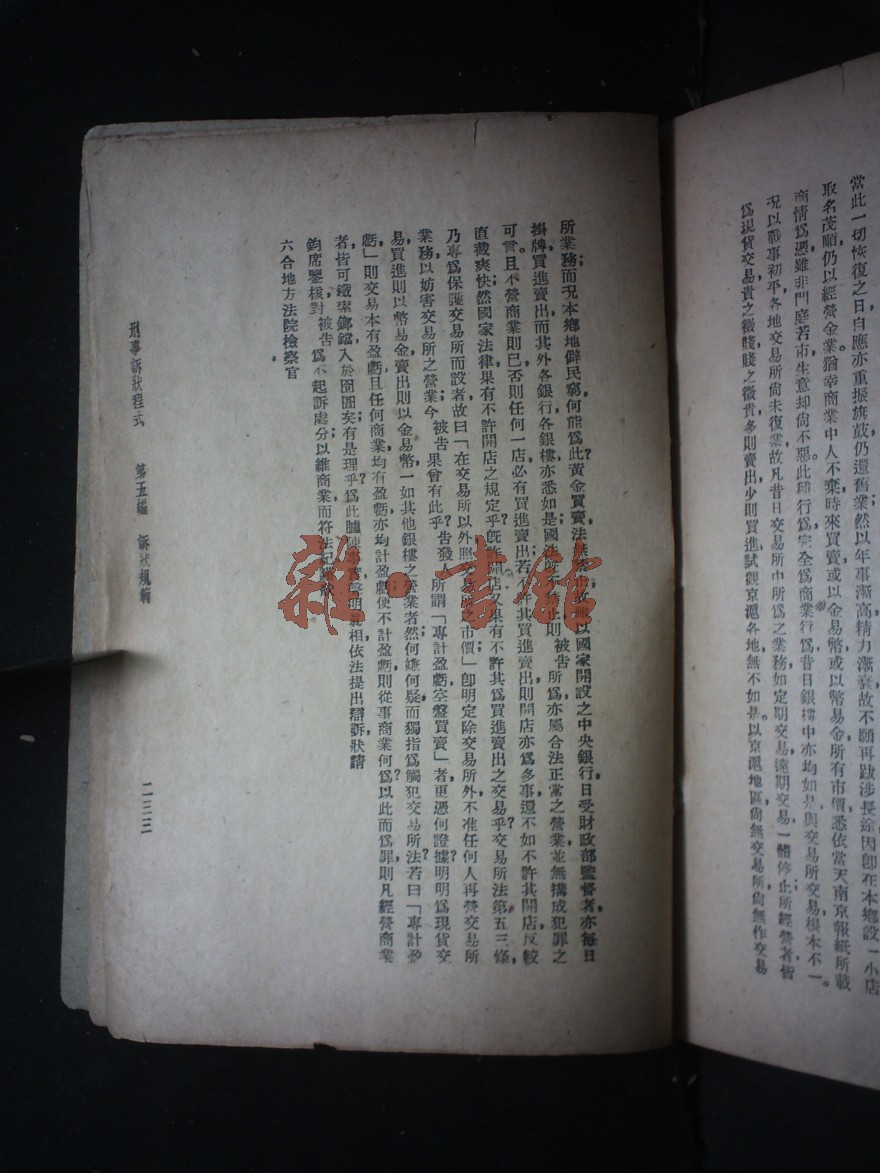 當此一切恢復之日自應亦重振旗鼓仍還舊業然以年事漸高精力漸衰故不願再跋涉長途因卽在本鄉設一小店
取名茂順仍以經營金業猶幸商業中人不棄時來買賣或以金易幣或以幣易金所有市價悉依當天南京報紙所載
商情爲憑雖非門庭若市生意却尙不惡此種行爲完全爲商業行爲昔日銀樓中亦均如是與交易所交易根本不一。
況以戰事初平各地交易所尙未復業故凡昔日交易所中所爲之業務如定期交易遠期交易一體停止所經營者皆
爲現貨交易貴之徵賤賤之徵貴多則賣出少則買進試觀京滬各地無不如是。以京滬地區尙無交易所尙無作交易
所業務;而況本鄉地僻民窮何能爲此?黃金買賣,法無禁止,故雖以國家開設之中央銀行,日受財政部監督者,亦每日
掛牌買進賣出而其外各銀行各銀樓亦悉如是國法所不禁止則被告所爲,亦屬合法正常之營業並無構成犯罪之
可言。且不營商業則已否則任何一店,必有買進賣出若不許其買進賣出則開店亦爲多事還不如不許其開店,反較
直截爽快然國家法律果有不許開店之規定乎?旣許開店又果有不許其爲買進賣出之交易乎?交易所法第五三條,
乃專爲保護交易所而設者,故曰「在交易所以外照交易所之市價」卽明定除交易所外不准任何人再營交易所
業務以妨害交易所之營業今被告果曾有此乎?告發人所謂「專計盈虧空盤買賣」者更憑何證據?明明爲現貨交
易買進則以幣易金賣出則以金易幣一如其他銀樓之營業者然何嫌何疑而獨指爲觸犯交易所法?若曰「專計盈
虧」則交易本有盈虧且任何商業均有盈虧亦均計盈虧使不計盈虧則從事商業何爲?以此而爲罪,則凡經營商業
者,皆可鐵索鋃鐺,入於囹圄矣有是理乎?爲此臚陳事實聲明眞相依法提出辯訴狀請
鈞席鑒核對被告爲不起訴處分以維商業而符法紀
六合地方法院檢察官
刑事訴狀程式 第五編 訴狀規範
二三三
雜·書館